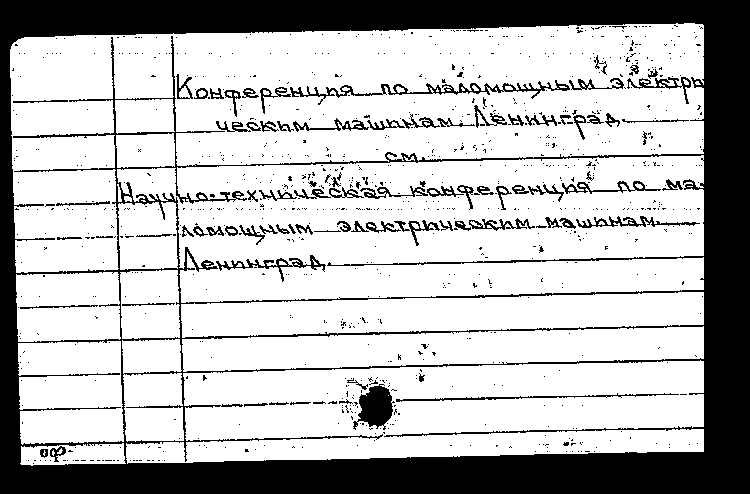 Конференция по маломощным электри
ческим машинам. Ленинград.
см.
Научно-техническая конференция по ма-
ломощным электрическим машинам.
Ленинград.